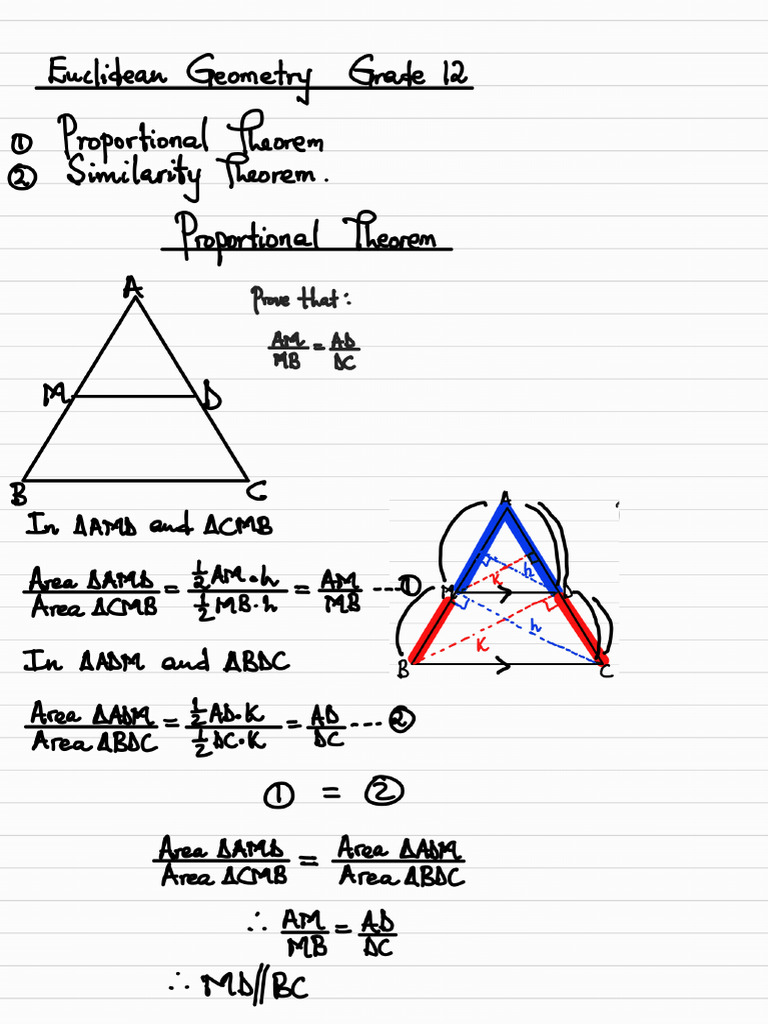 Euclidean Geometry Grade 12
① Proportional Theorem
② Similarity Theorem.
Proportional Theorem
A
Prove that:
AM/MB = AD/DC
M D
B C
In ΔAMD and ΔCMB
Area ΔAMD / Area ΔCMB = ½AM·h / ½MB·h = AM/MB ---①
In ΔADM and ΔBDC
Area ΔADM / Area ΔBDC = ½AD·K / ½DC·K = AD/DC ---②
A
K h
M D
K h
B C
① = ②
Area ΔAMD / Area ΔCMB = Area ΔADM / Area ΔBDC
∴ AM/MB = AD/DC
∴ MD//BC